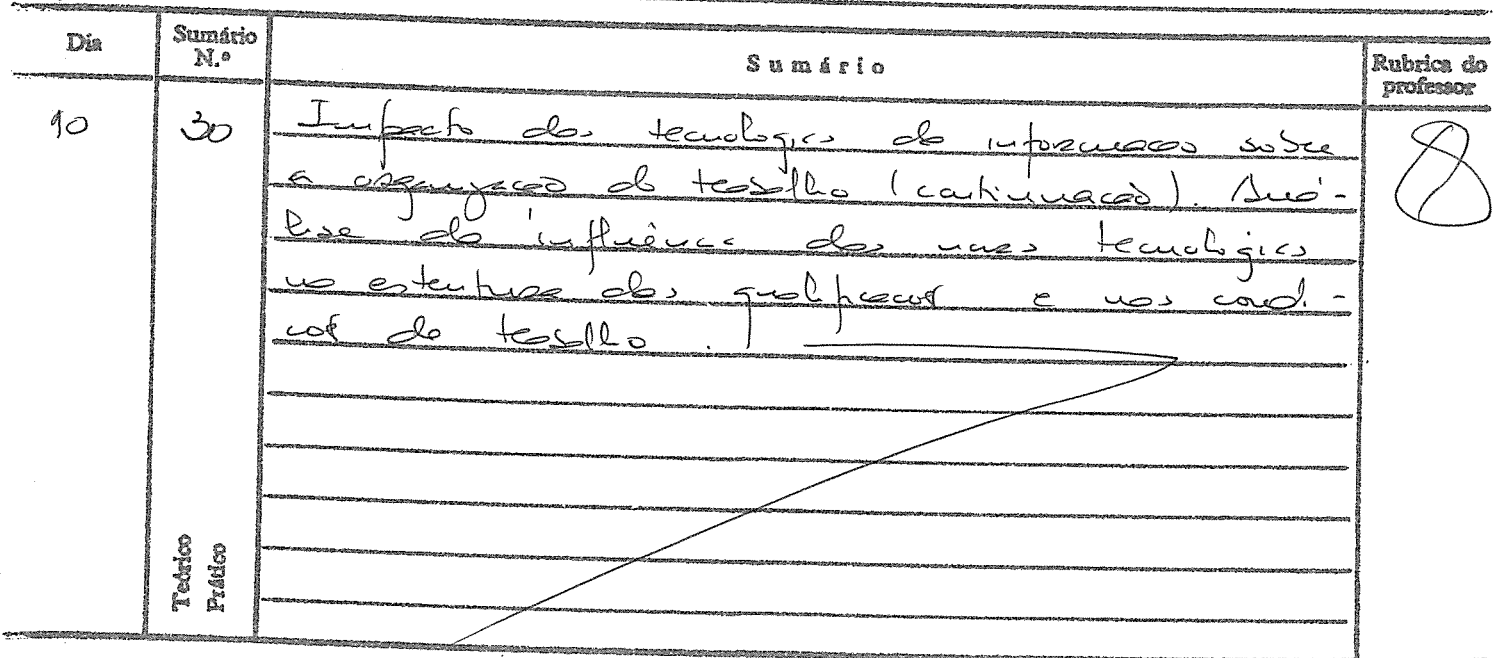 Dia Sumário N.º Sumário Rubrica do professor
10 30 Impacto das tecnologias de informação sobre
a organização do trabalho (continuação). Aná-
lise da influência das novas tecnologias
na estrutura das qualificações e nas condi-
ções de trabalho.
Teórico
Prático